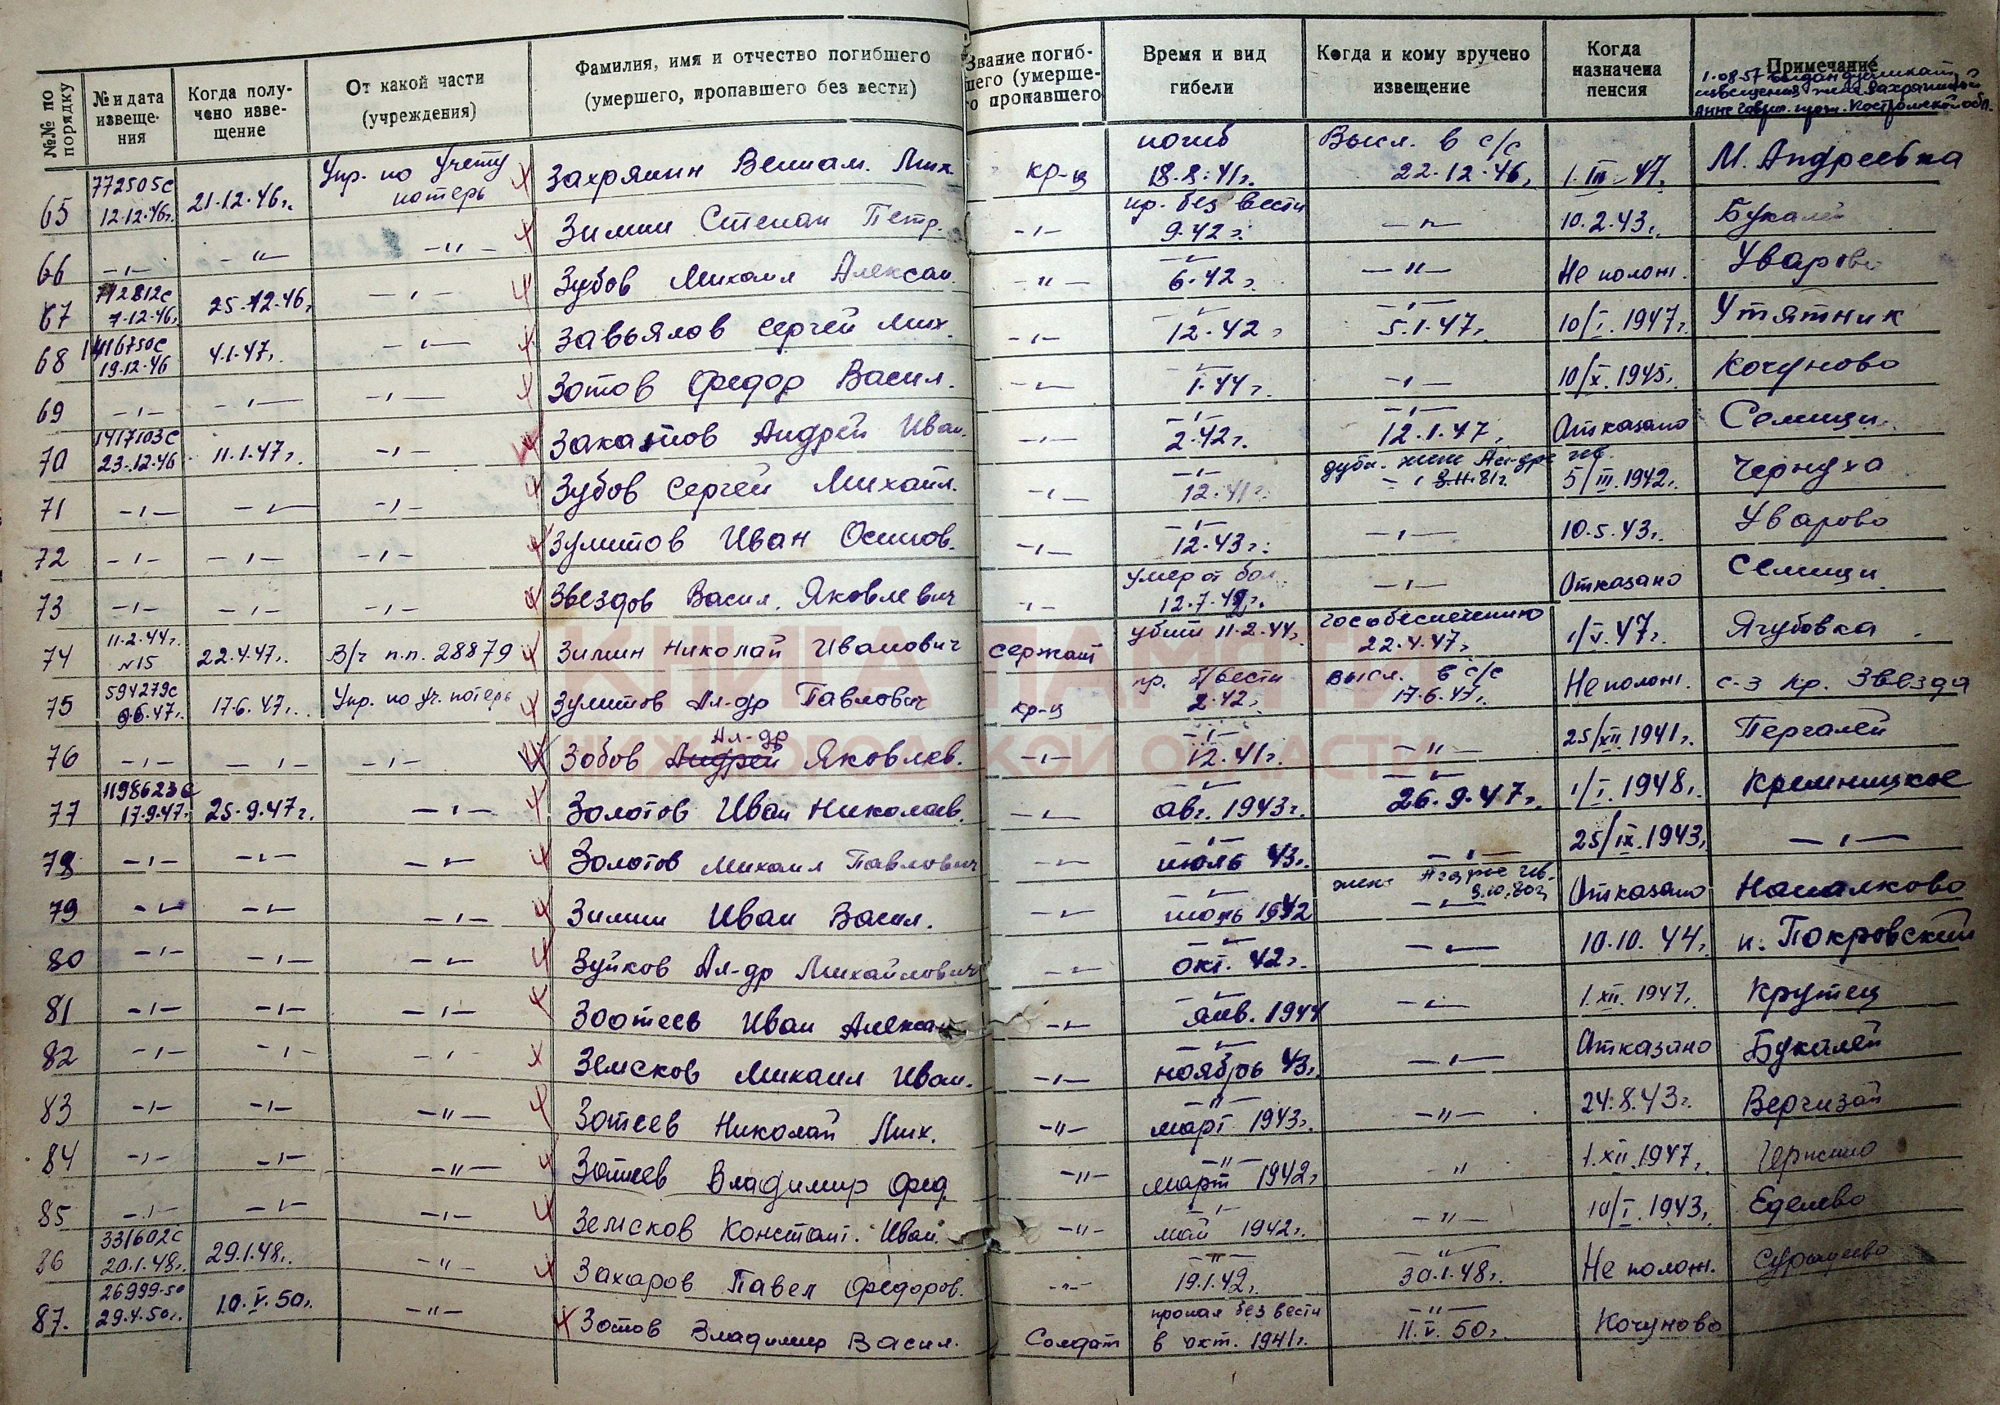 №№ по порядку
№ и дата извеще-ния
Когда полу-чено изве-щение
От какой части (учреждения)
Фамилия, имя и отчество погибшего (умершего, пропавшего без вести)
Звание погиб-шего (умерше-го пропавшего
Время и вид гибели
Когда и кому вручено извещение
Когда назначена пенсия
Примечание
1.08.57 выдан дубликат
извещения жене Захряминой
Анне Гавр. прож. Костромской обл.
65 772505с 12.12.46г. 21.12.46г. Упр. по учету потерь Захрямин Вениам. Мих. кр-ц погиб 18.8.41г. Высл. в с/с 22.12.46г. 1.III.47г. М. Андреевка
66 -"- -"- -"- Зимин Степан Петр. -"- пр. без вести 9.42г. -"- 10.2.43г. Букалей
67 772812с 7.12.46г. 25.12.46г. -"- Зубов Михаил Алексан. -"- -"- 6.42г. -"- Не полож. Уварово
68 1416750с 19.12.46 4.1.47г. -"- Завьялов Сергей Мих. -"- -"- 12.42г -"- 5.1.47г. 10/I.1947г. Утятник
69 -"- -"- -"- Зотов Федор Васил. -"- -"- 1.44г. -"- 10/X.1945г. Кочуново
70 1417103с 23.12.46 11.1.47г. -"- Закатов Андрей Иван. -"- -"- 2.42г. -"- 12.1.47г. Отказано Семищи
71 -"- -"- -"- Зубов Сергей Михайл. -"- -"- 12.41г. дубл. жене -"- 5/III.1942г. Чернуха
72 -"- -"- -"- Зулитов Иван Осипов. -"- -"- 12.43г. -"- 10.5.43г. Уварово
73 -"- -"- -"- Звездов Васил. Яковлевич -"- умер от бол. 12.7.42г. -"- Отказано Семищи
74 11.2.44г. №15 22.4.47г. В/ч п.п. 28879 Зимин Николай Иванович сержант убит 11.2.44г. гособеспечению 22.4.47г. 1/V.47г. Ягубовка
75 594279с 9.6.47г. 17.6.47г. Упр. по уч. потерь Зулитов Ал-др Павлович кр-ц пр. б/вести 2.42г. высл. в с/с 17.6.47г. Не полож. с-з Кр. Звезда
76 -"- -"- -"- Зобов Андрей Ал-др Яковлев. -"- -"- 12.41г. -"- 25/XII.1941г. Пергалей
77 1198623с 17.9.47г. 25.9.47г. -"- Золотов Иван Николаев. -"- -"- авг. 1943г. -"- 26.9.47г. 1/I.1948г. Кремницкое
78 -"- -"- -"- Золотов Михаил Павлович -"- -"- июль 43г. -"- 25/IX.1943г. -"-
79 -"- -"- -"- Зимин Иван Васил. -"- -"- 1942 жене 9.10.80г -"- Отказано Какалково
80 -"- -"- -"- Зуйков Ал-др Михайлович -"- -"- окт. 42г. -"- 10.10.44г. п. Покровский
81 -"- -"- -"- Зоотеев Иван Алексан -"- -"- янв. 1944 -"- 1.XII.1947г. Крутец
82 -"- -"- -"- Земсков Михаил Иван. -"- -"- ноябрь 43г. -"- Отказано Букалей
83 -"- -"- -"- Зотеев Николай Мих. -"- -"- март 1943г. -"- 24.8.43г. Вергизай
84 -"- -"- -"- Зотеев Владимир Фед. -"- -"- март 1942г -"- 1.XII.1947г.
85 -"- -"- -"- Земсков Констант. Иван. -"- -"- май 1942г. -"- 10/I.1943г. Еделево
86 331602с 20.1.48г. 29.1.48г. -"- Захаров Павел Федоров. -"- -"- 19.1.42г. -"- 30.1.48г. Не полож.
87. 26999-50 29.4.50г. 10.V.50г. -"- Зотов Владимир Васил. Солдат пропал без вести в окт. 1941г. -"- 11.V.50г. Кочуново
КНИГА ПАМЯТИ
НИЖЕГОРОДСКОЙ ОБЛАСТИ